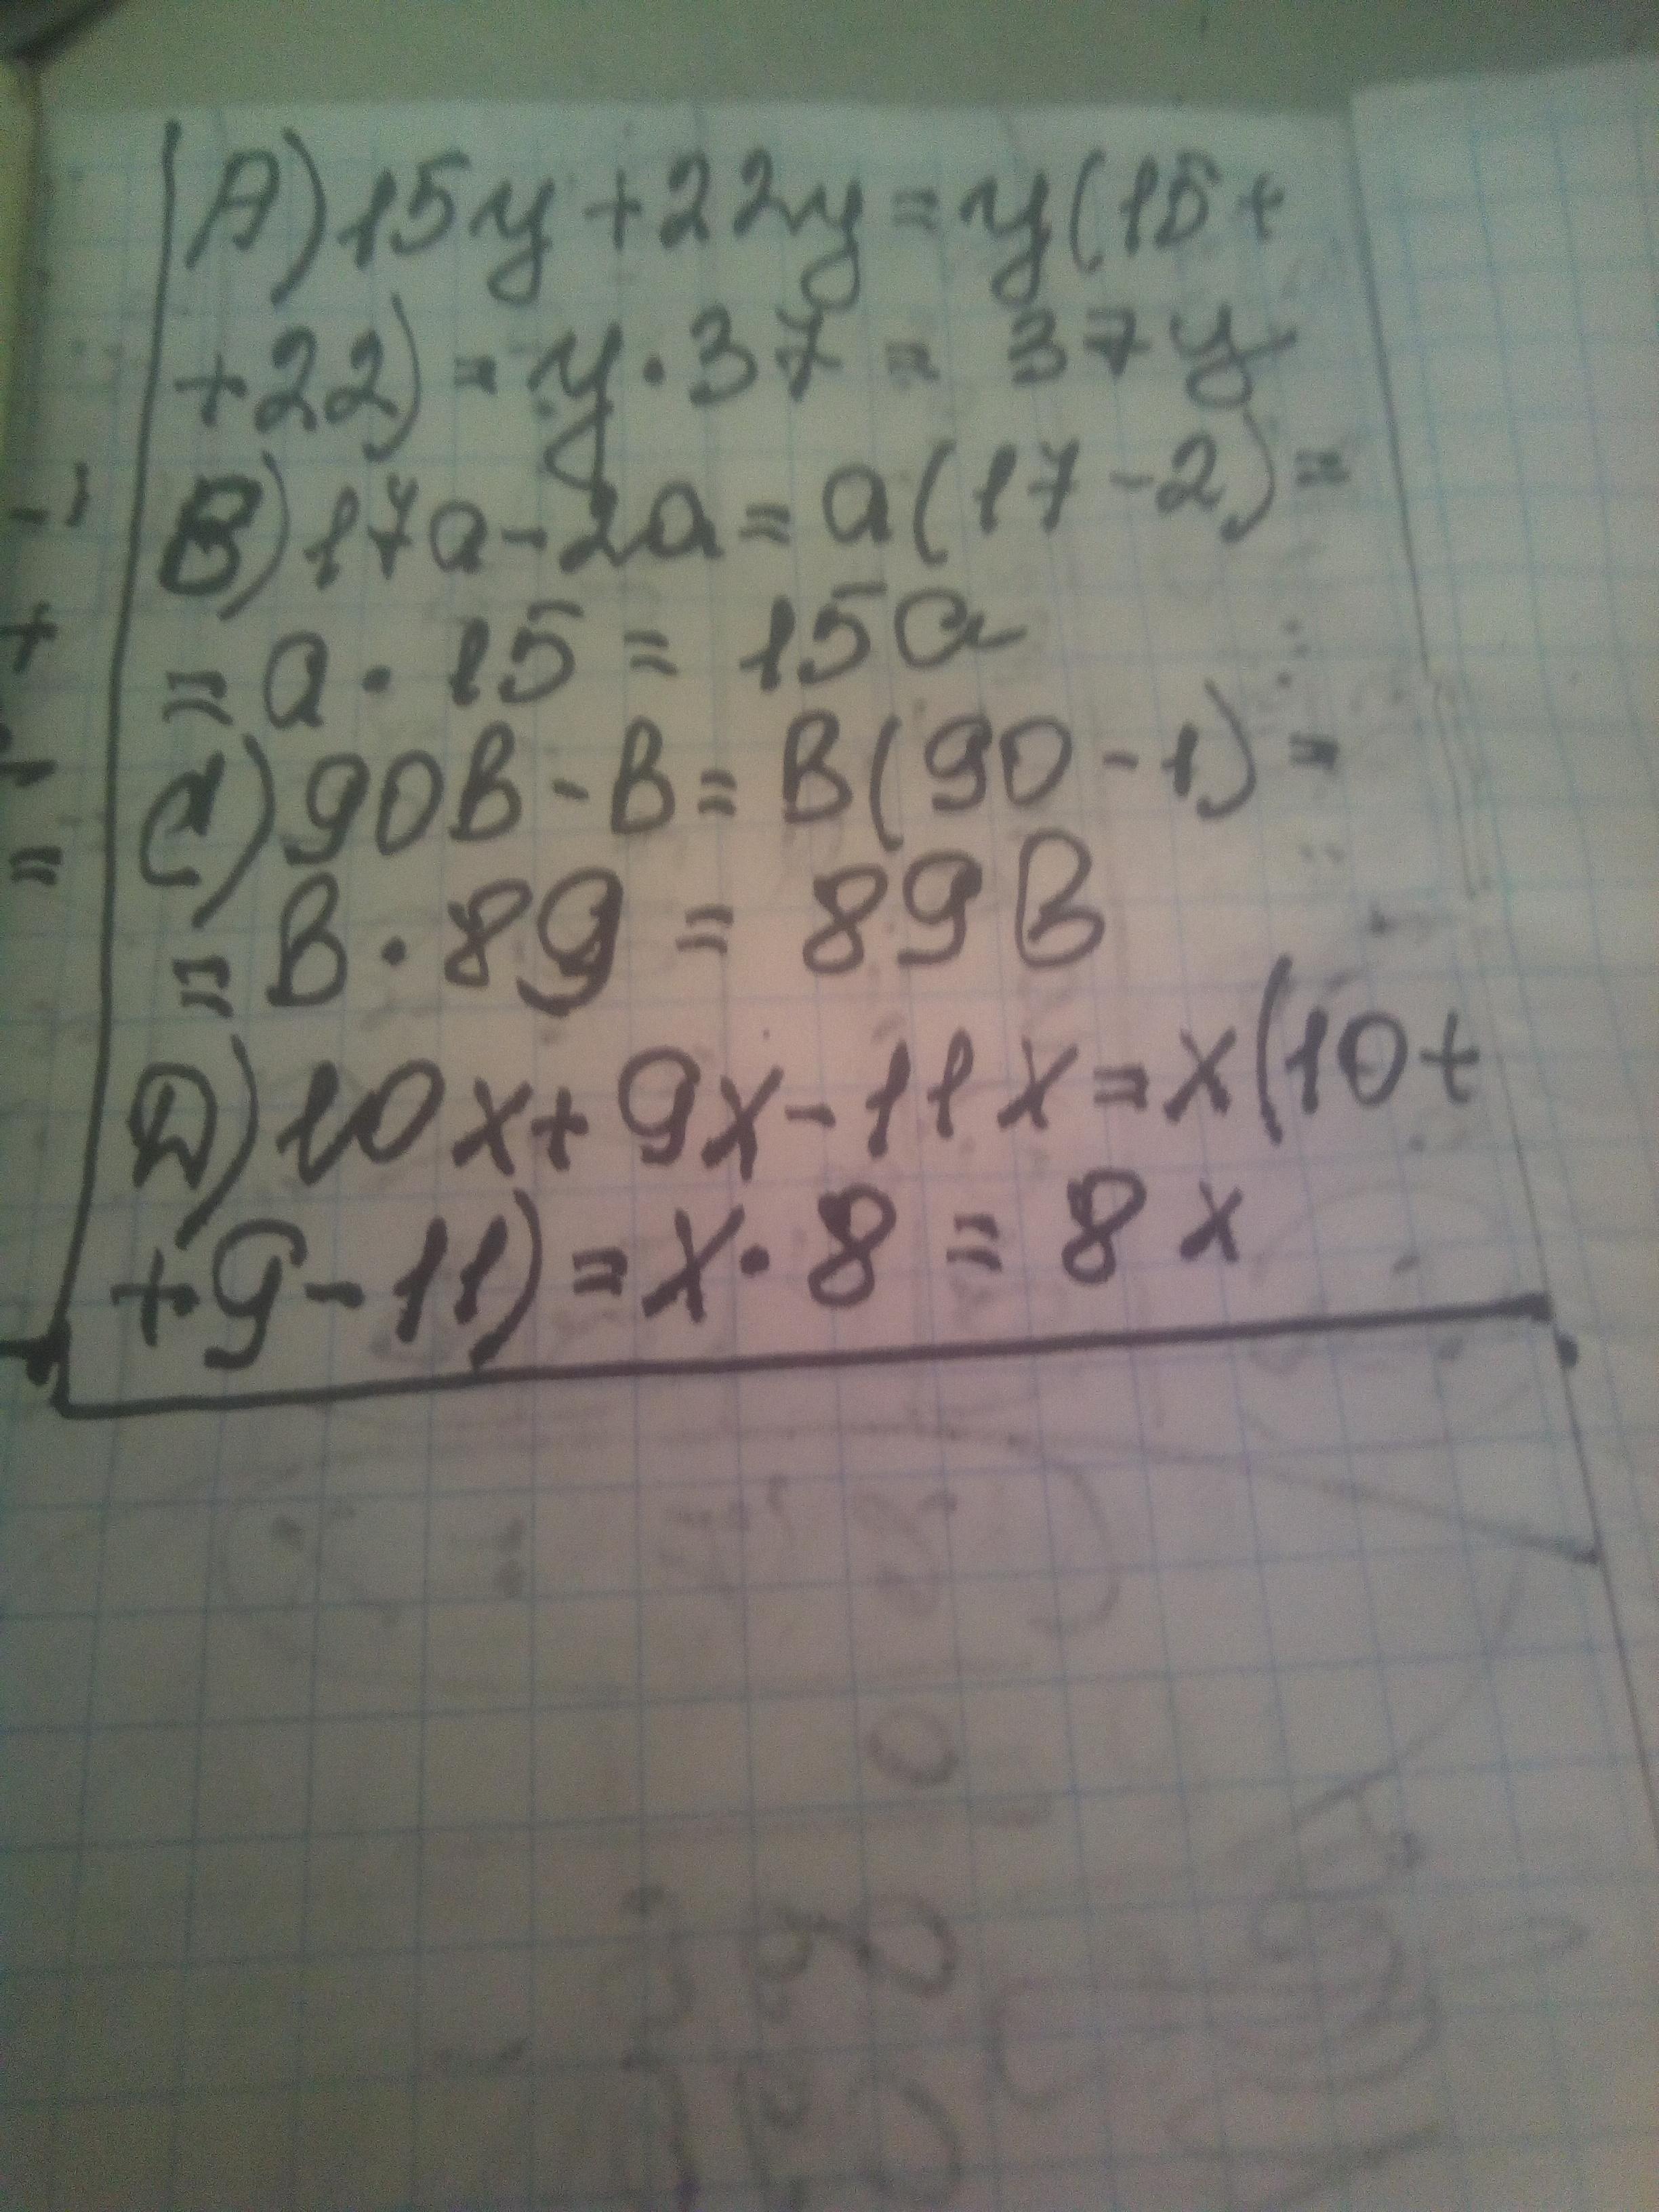 A) 15y + 22y = y(15 +
+ 22) = y · 37 = 37y
B) 17a - 2a = a(17 - 2) =
= a · 15 = 15a
C) 90B - B = B(90 - 1) =
= B · 89 = 89B
D) 10x + 9x - 11x = x(10 +
+ 9 - 11) = x · 8 = 8x